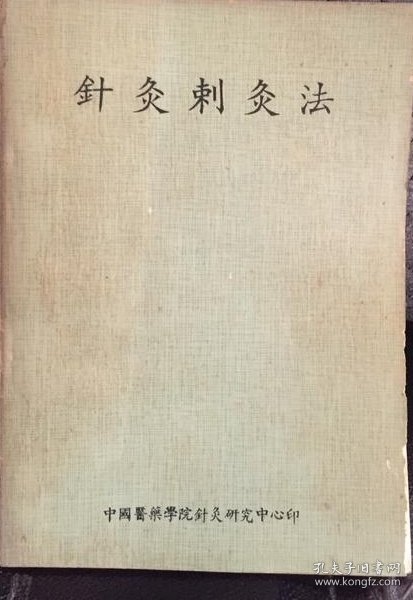 針灸刺灸法
中國醫藥學院針灸研究中心印
孔夫子旧书网
www.kongfz.com